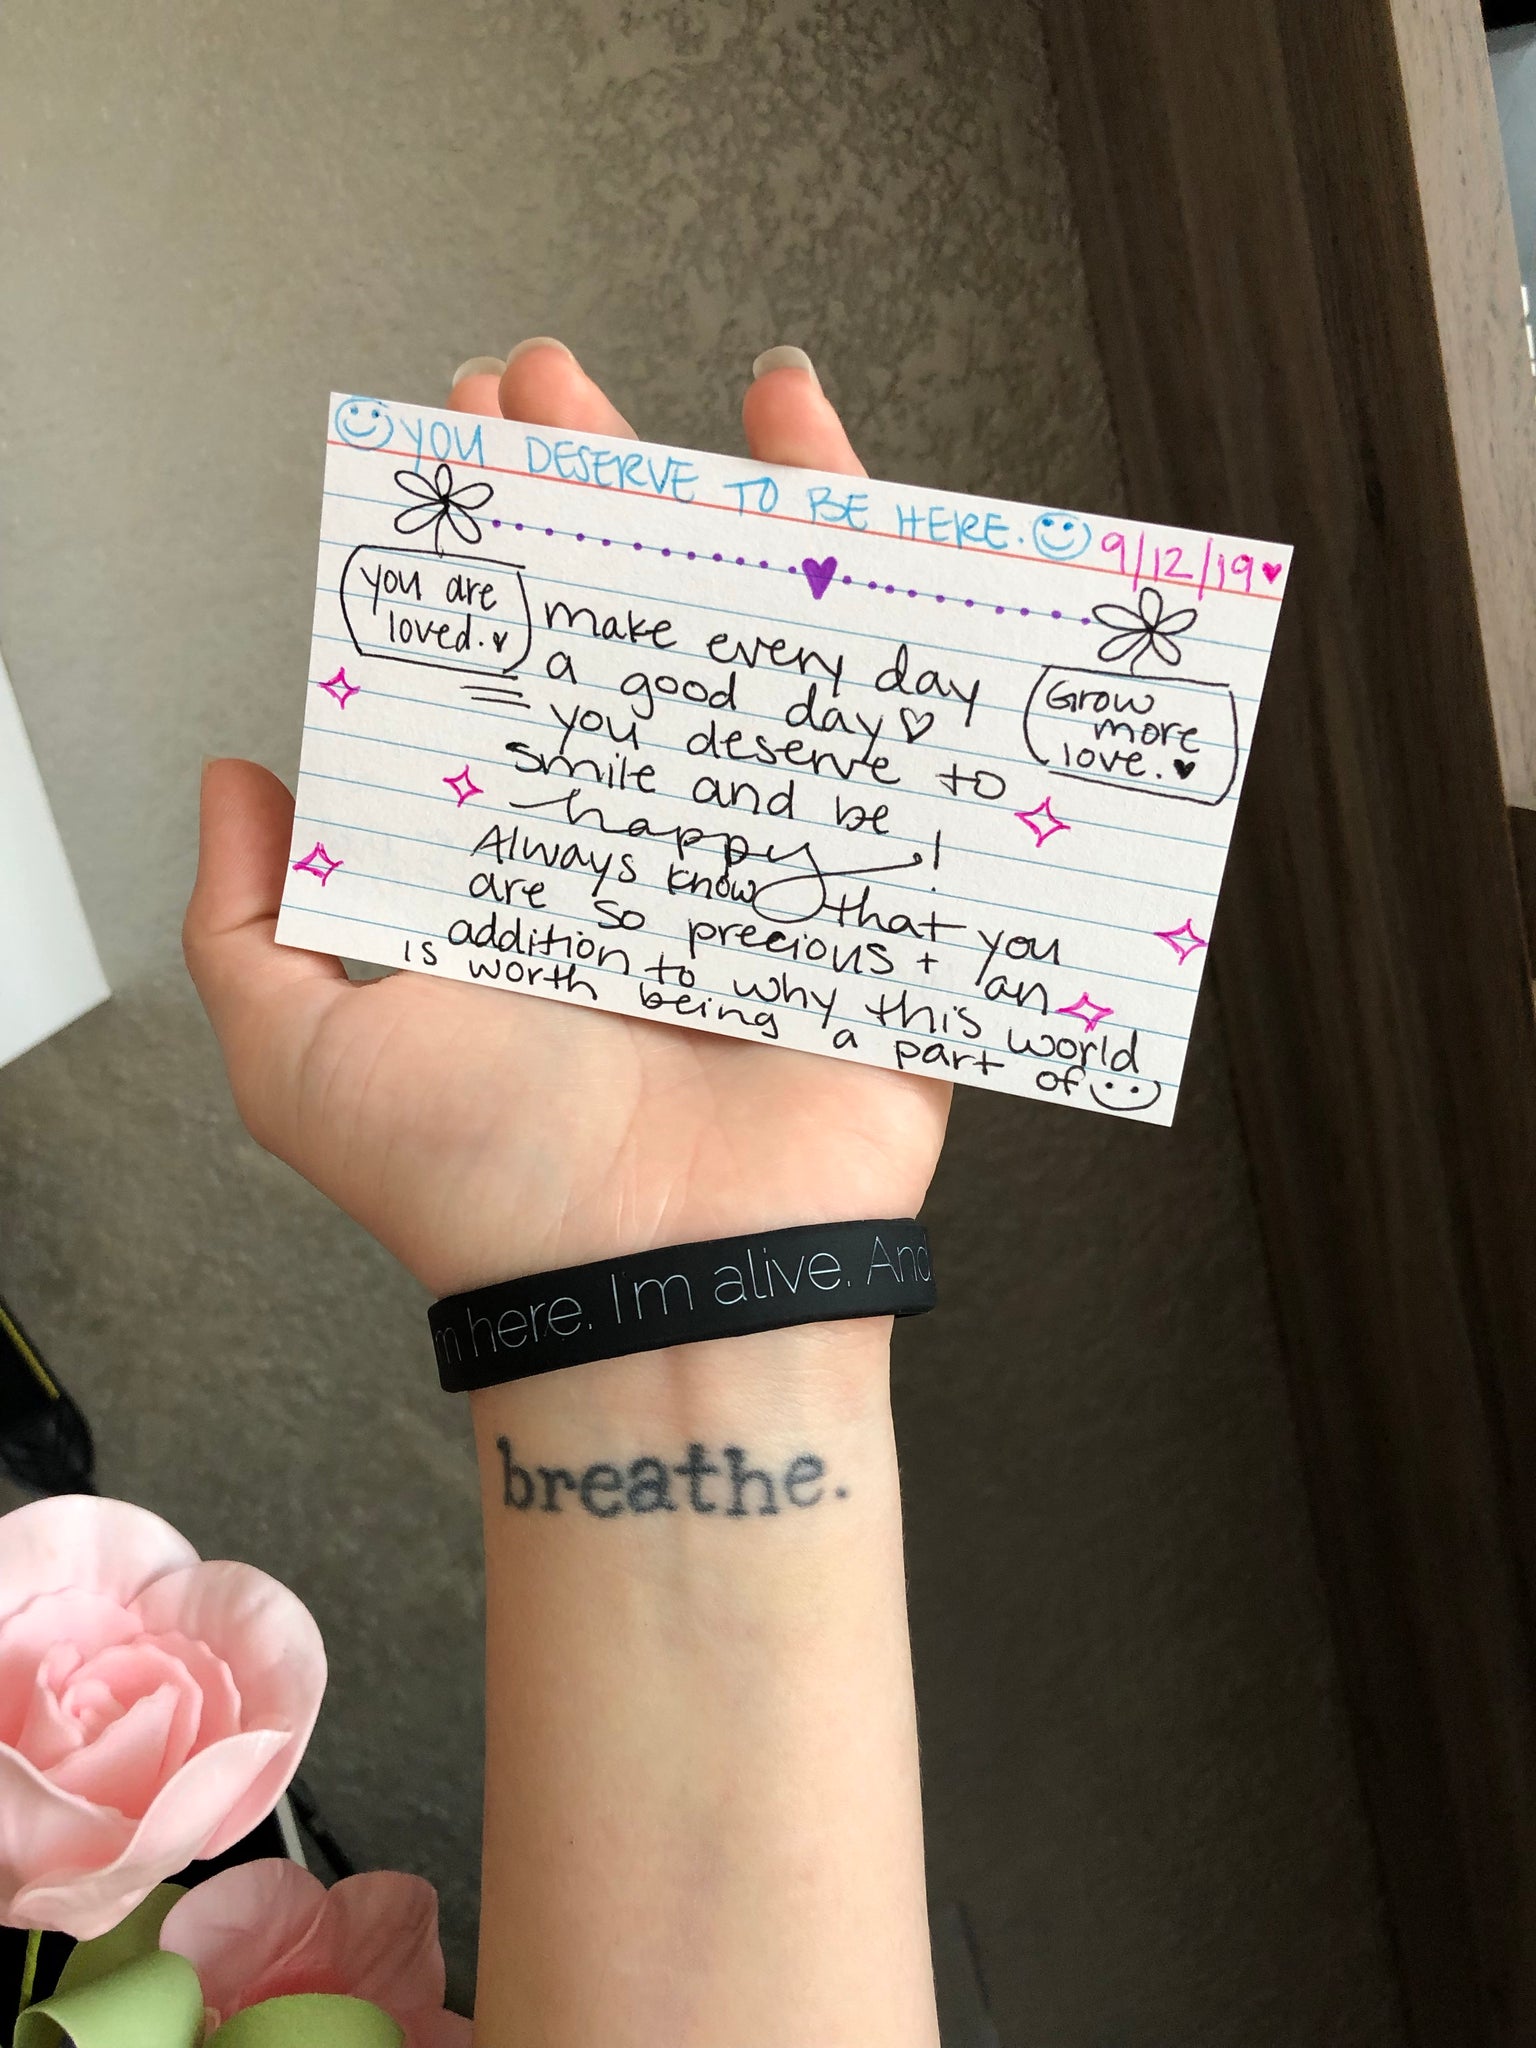 YOU DESERVE TO BE HERE. 9/12/19
you are
loved.
make every day
a good day
Grow
more
love.
you deserve to
smile and be
happy!
Always know that you
are so precious + an
addition to why this world
is worth being a part of
m here. I'm alive. And
breathe.